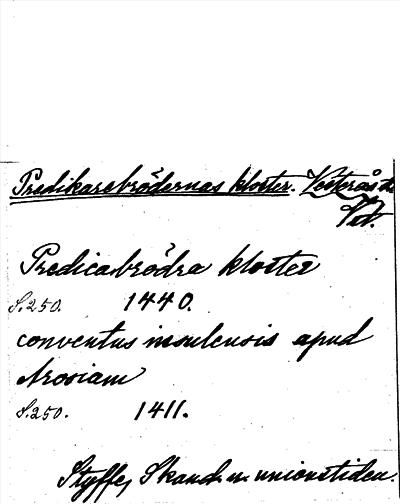 Predikarebrödernas kloster. Vesterås
Predicabrödra kloster
S.250. 1440.
conventus insulensis apud
Arosiam
S.250. 1411.
Styffe, Skand. u. unionstiden.